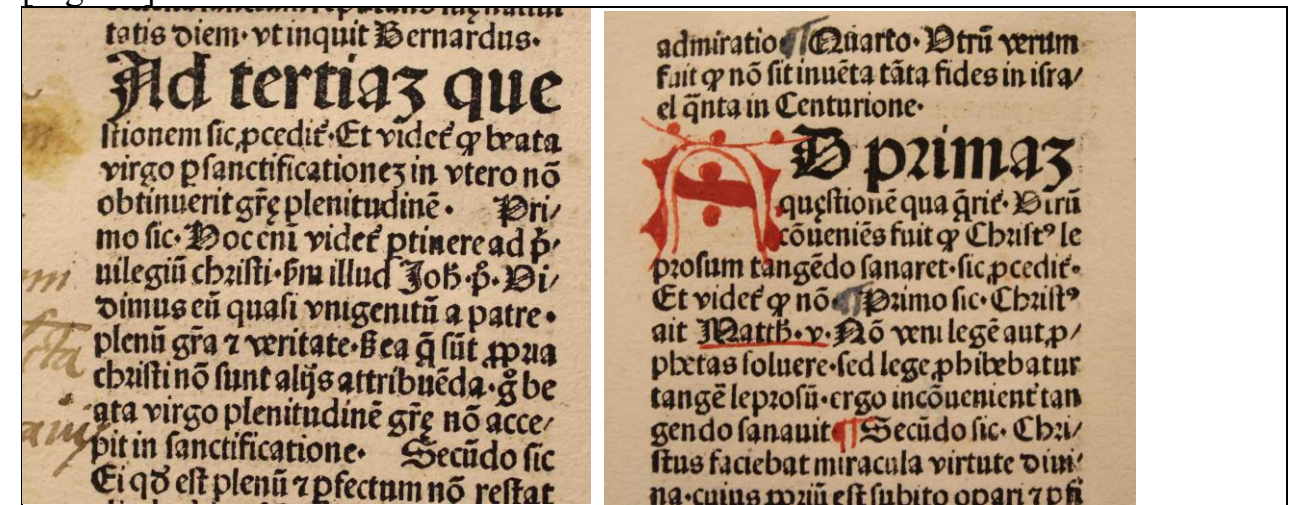 tatis diem. vt inquit Bernardus.
Ad tertiaz que
stionem sic ꝓcedit᷑. Et videt᷑ ꝙ beata
virgo ꝑ sanctificationez in vtero nō
obtinuerit gr̄ę plenitudinē. Pri/
mo sic. Hoc eni᷑ videt᷑ ꝑtinere ad p̄/
uilegiū christi. ẜm illud Joh̄. p̊. Vi/
dimus eū quasi vnigenitū a patre.
plenū gr̄a ⁊ veritate. ẜ ea q̄ sūt ꝓpria
christi nō sunt alijs attribuēda. g̊ be
ata virgo plenitudinē gr̄ę nō acce/
pit in sanctificatione. Secūdo sic
Ei qd̄ est plenū ⁊ ꝑfectum nō restat
admiratio ¶ Quarto. Vtrū verum
fuit ꝙ nō sit inuēta tāta fides in isra/
el q̄nta in Centurione.
AD primaz
quęstionē qua q̄rit᷑. Vtrū
cōueniēs fuit ꝙ Christꝰ le
prosum tangēdo sanaret. sic ꝓcedit᷑.
Et videt᷑ ꝙ nō ¶ Primo sic. Christꝰ
ait Matth̄. v. Nō veni legē aut ꝓ/
phetas soluere. sed lege ꝓhibebatur
tangē leprosū. ergo incōuenient᷑ tan
gendo sanauit ¶ Secūdo sic. Chri/
stus faciebat miracula virtute diui/
na. cuius ꝓpriū est subito oꝑari ⁊